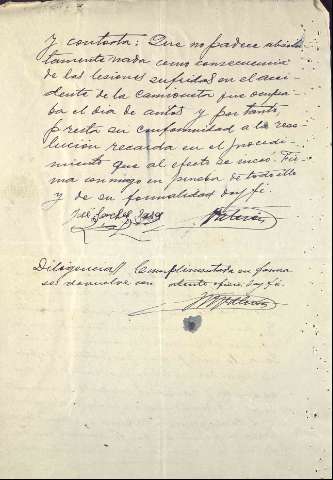 Y contesta: Que no padece absolu-
tamente nada como consecuencia
de las lesiones sufridas en el acci-
dente de la camioneta que ocupa-
ba el día de autos y por tanto,
presta su conformidad a la reso-
lución recaida en el procedi-
miento que al efecto se incoó. Fir-
ma conmigo en prueba de todo ello
y de su formalidad doy fé.
Diligencia Cumplimentada en forma
se devuelve con atento oficio doy fé.